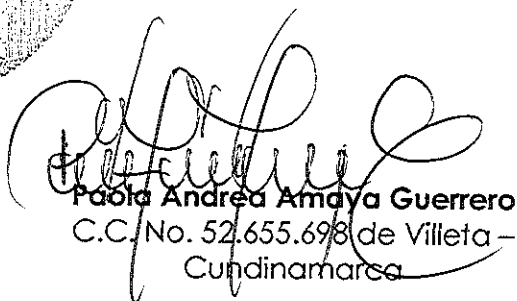 Paola Andrea Amaya Guerrero
C.C. No. 52.655.698 de Villeta –
Cundinamarca